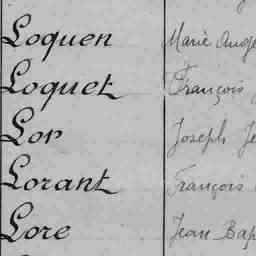 Loquen Marie Ange
Loquet François
Lor Joseph Je
Lorant François
Lore Jean Bap